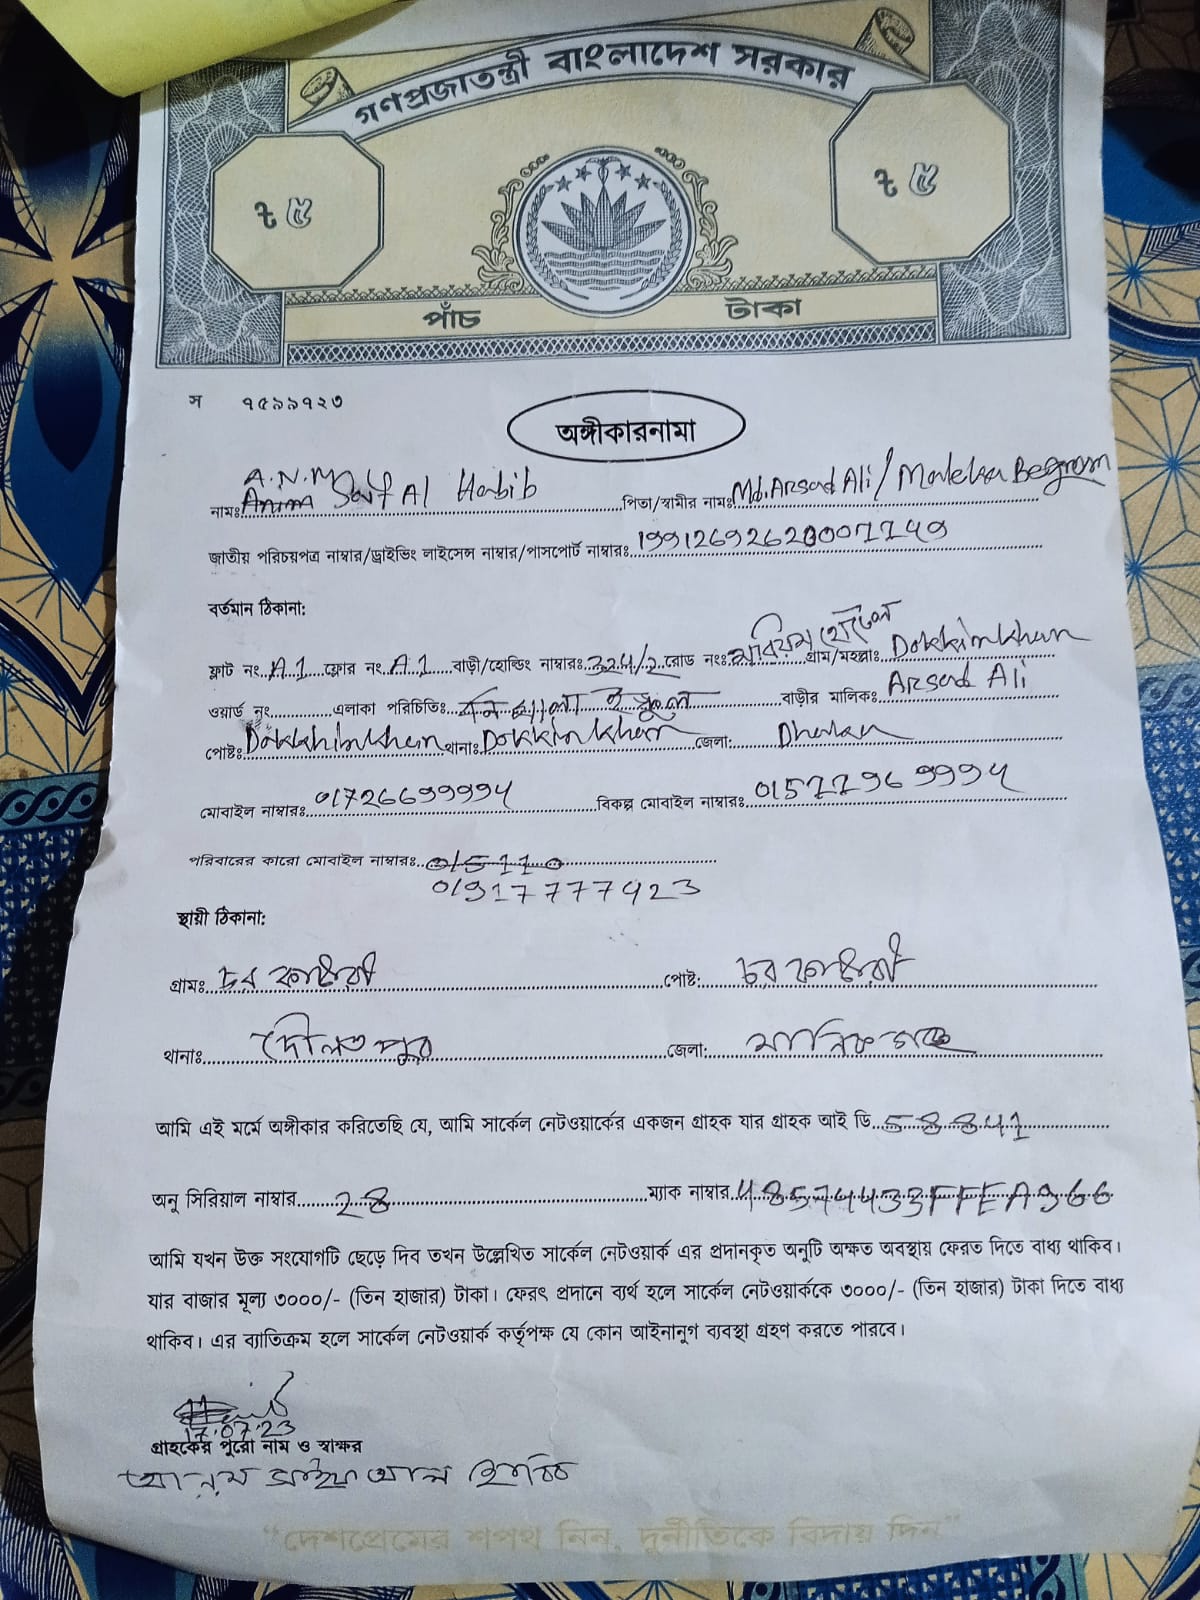 গণপ্রজাতন্ত্রী বাংলাদেশ সরকার
৳ ৫
৳ ৫
পাঁচ টাকা
স ৭৫৯৯৭২৩
অঙ্গীকারনামা
A.N.M
নামঃ Saif Al Habib পিতা/স্বামীর নামঃ Md. Arsad Ali / Maleka Begrom
জাতীয় পরিচয়পত্র নাম্বার/ড্রাইভিং লাইসেন্স নাম্বার/পাসপোর্ট নাম্বারঃ
বর্তমান ঠিকানা:
ফ্লাট নং. A.1 ফ্লোর নং. A.1 বাড়ী/হোল্ডিং নাম্বারঃ 324/2 রোড নংঃ গ্রাম/মহল্লাঃ Dokkinkhan
ওয়ার্ড নং এলাকা পরিচিতিঃ বাড়ীর মালিকঃ Arsad Ali
পোষ্টঃ Dokkhinkhan থানাঃ Dokkinkhan জেলা: Dhaka
মোবাইল নাম্বারঃ 01726699994 বিকল্প মোবাইল নাম্বারঃ 01511969994
পরিবারের কারো মোবাইল নাম্বারঃ
01917777923
স্থায়ী ঠিকানা:
গ্রামঃ চর পোষ্ট: চর
থানাঃ দৌলতপুর জেলা: মানিকগঞ্জ
আমি এই মর্মে অঙ্গীকার করিতেছি যে, আমি সার্কেল নেটওয়ার্কের একজন গ্রাহক যার গ্রাহক আই ডি 58841
অনু সিরিয়াল নাম্বার 28 ম্যাক নাম্বার 48574433FFEA966
আমি যখন উক্ত সংযোগটি ছেড়ে দিব তখন উল্লেখিত সার্কেল নেটওয়ার্ক এর প্রদানকৃত অনুটি অক্ষত অবস্থায় ফেরত দিতে বাধ্য থাকিব।
যার বাজার মূল্য ৩০০০/- (তিন হাজার) টাকা। ফেরৎ প্রদানে ব্যর্থ হলে সার্কেল নেটওয়ার্ককে ৩০০০/- (তিন হাজার) টাকা দিতে বাধ্য
থাকিব। এর ব্যাতিক্রম হলে সার্কেল নেটওয়ার্ক কর্তৃপক্ষ যে কোন আইনানুগ ব্যবস্থা গ্রহণ করতে পারবে।
17.07.23
গ্রাহকের পুরো নাম ও স্বাক্ষর
আ ন ম সাইফ আল হাবিব
“দেশপ্রেমের শপথ নিন, দুর্নীতিকে বিদায় দিন”